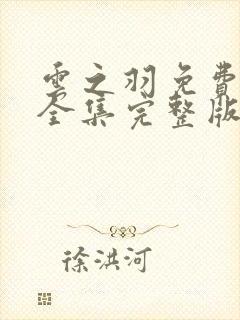 雲之羽免費
全集完整版
徐洪河